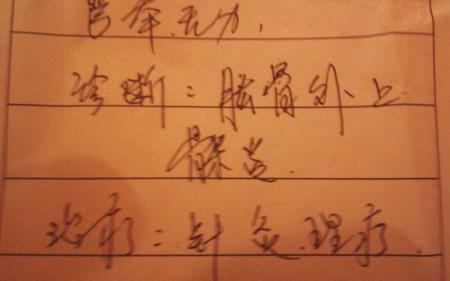 无力,
诊断:肱骨外上
髁炎.
治疗:针灸.理疗.